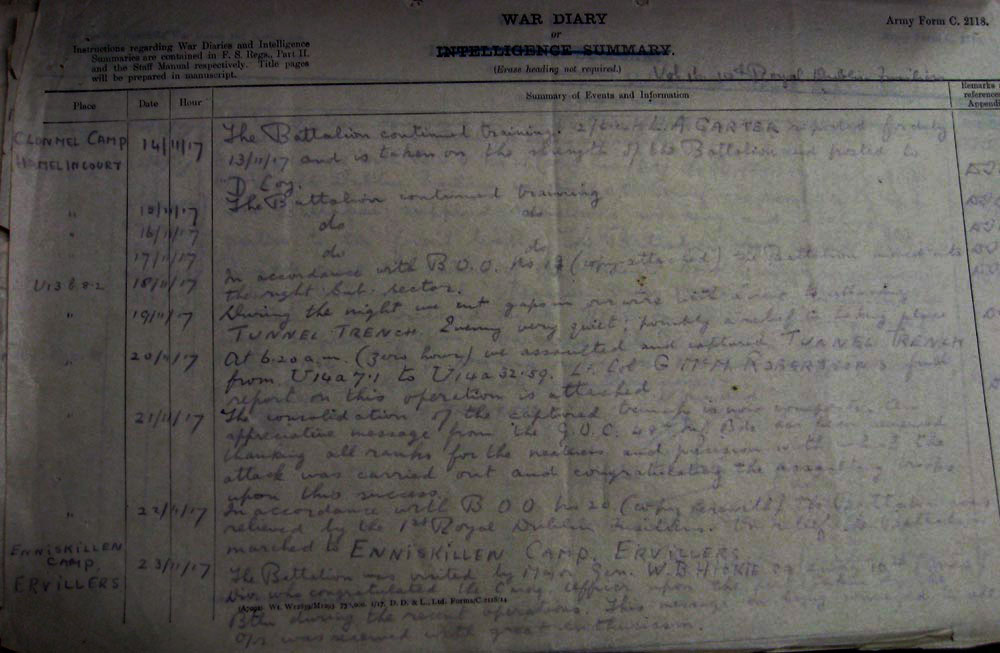 WAR DIARY
or
INTELLIGENCE SUMMARY.
(Erase heading not required.)
Army Form C. 2118.
Instructions regarding War Diaries and Intelligence
Summaries are contained in F. S. Regs., Part II.
and the Staff Manual respectively. Title pages
will be prepared in manuscript.
10th Royal Dublin Fusiliers
Place Date Hour Summary of Events and Information Remarks
references
Appendi
CLONMEL CAMP 14/11/17 The Battalion continued training. 2/Lieut L. A. GARTER reported for duty
HAMELINCOURT 13/11/17 and is taken on the strength of the Battalion and posted to
D Coy.
" 15/11/17 The Battalion continued training
" 16/11/17 do do
" 17/11/17 do do
U13 b.8.2 18/11/17 In accordance with B.O.O. No (copy attached) the Battalion moved into
the right sub sector.
" 19/11/17 During the night we cut gaps in our wire
TUNNEL TRENCH. Enemy very quiet; possibly a relief is taking place
" 20/11/17 At 6.20 a.m. (Zero hour) we assaulted and captured TUNNEL TRENCH
from U14a 7.1 to U14a 32.59. Lt. Col G McM ROBERTSON'S
report on this operation is attached
" 21/11/17 The consolidation of the captured trench is now complete. A
appreciative message from the G.O.C. 48th Inf Bde has been received
thanking all ranks for the neatness and precision with which the
attack was carried out and congratulating the assaulting troops
upon this success.
" 22/11/17 In accordance with B O O No 20 (copy herewith) the Battalion was
relieved by the 1st Royal Dublin Fusiliers. On relief the Battalion
marched to ENNISKILLEN CAMP, ERVILLERS
ENNISKILLEN
CAMP.
ERVILLERS 23/11/17 The Battalion was visited by Major Gen. W. B HICKIE
Div. was congratulated the Cmdg Officer upon the
Bttn during the recent operations. This message on being
O/r was received with great enthusiasm.